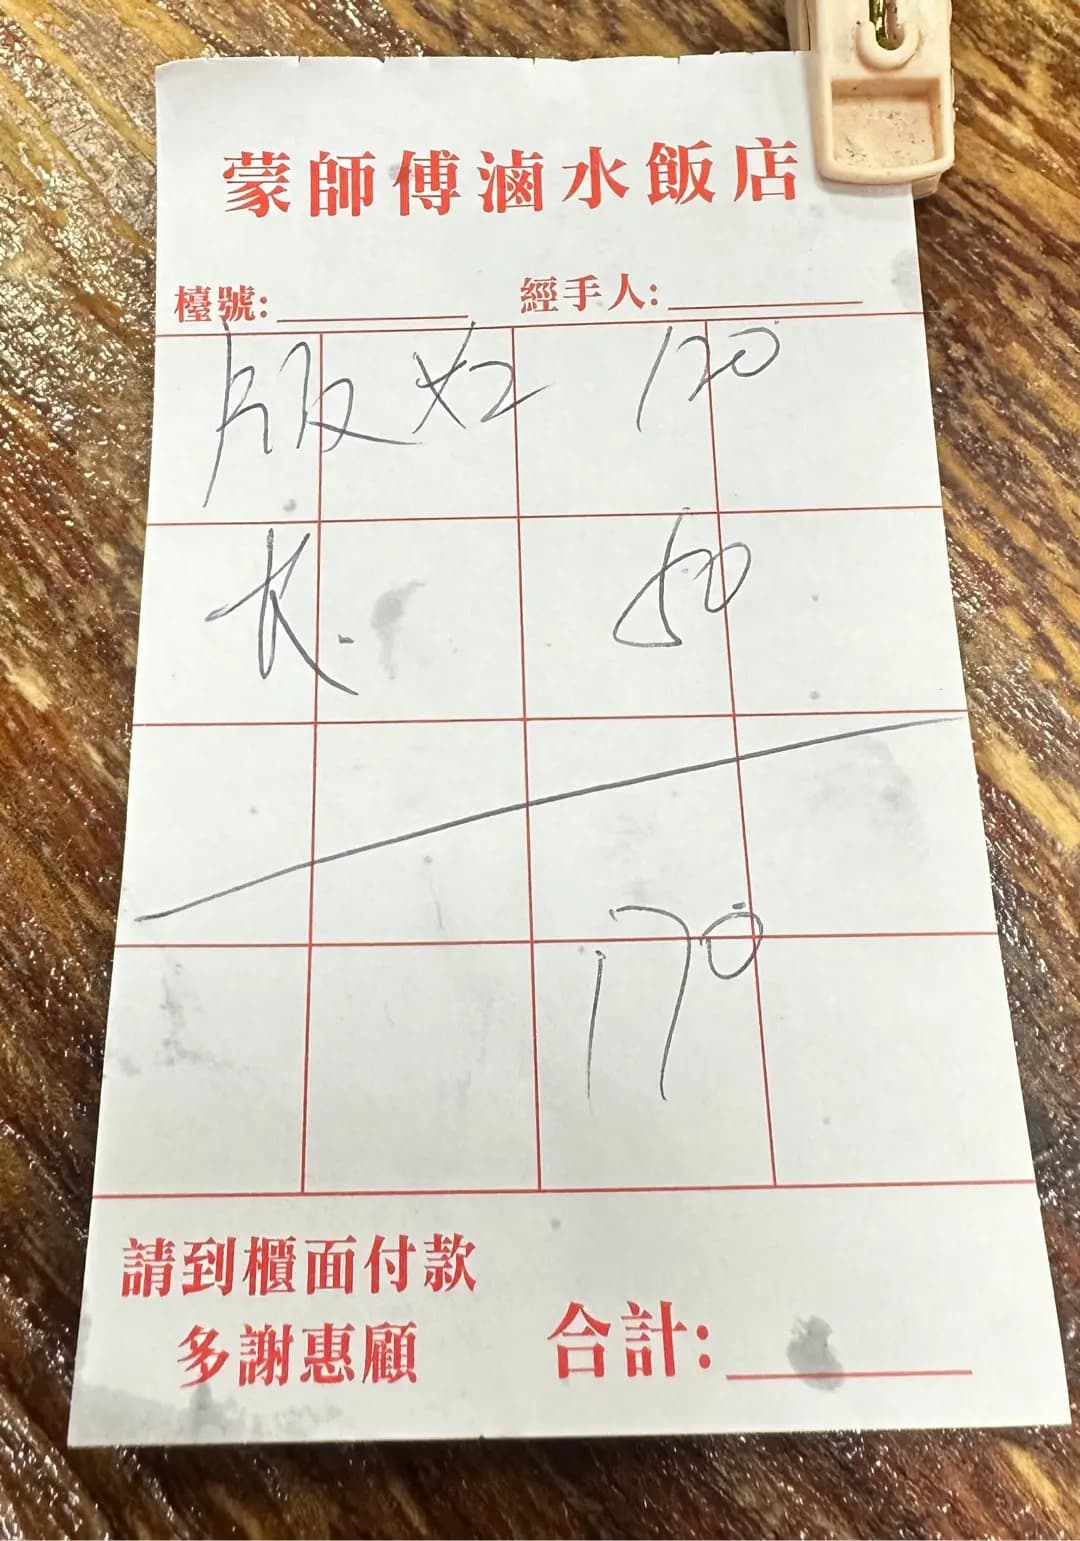 蒙師傅滷水飯店
檯號: 經手人:
x2 120
50
170
請到櫃面付款
多謝惠顧
合計: